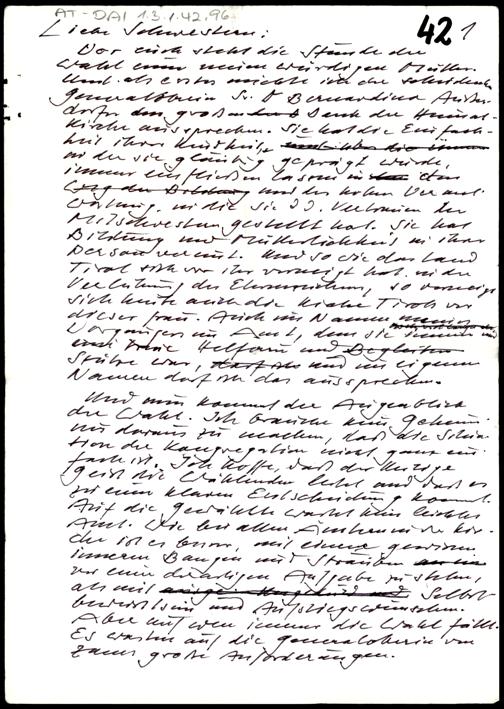 AT-DAI 1.3.1.42.96
42 1
Liebe Schwestern!
Vor euch steht die Stunde der
Wahl einer neuen würdigen Mutter.
Und als erstes möchte ich der scheidenden
Generaloberin Sr. Bernardina
den großen Dank der Heimat-
kirche aussprechen. Sie hat die Einfach-
heit ihrer Kindheit
in der sie gläubig geprägt wurde,
immer einfließen lassen in das
und der hohen Verant-
wortung, in die sie Vertrauen der
Mitschwestern gestellt hat. Sie hat
Bildung und Mütterlichkeit in ihrer
Person vereint. Und so wie das Land
Tirol sich vor ihr verneigt hat in der
Verleihung des Ehrenzeichens, so verneigt
sich heute auch die Kirche Tirols vor
dieser Frau. Auch im Namen meines
Vorgängers im Amt, dem sie immer
eine Helferin und Begleiterin
Stütze war, und im eigenen
Namen darf ich das aussprechen.
Und nun kommt der Augenblick
der Wahl. Ich brauche kein Geheim-
nis daraus zu machen, daß die Situa-
tion der Kongregation nicht ganz ein-
fach ist. Ich hoffe, daß der Heilige
Geist die Wählenden leitet und daß es
zu einer klaren Entscheidung kommt.
Auf die Gewählte wartet kein leichtes
Amt. Wie bei allen Ämtern in der Kir-
che ist es besser, mit einem gewissen
inneren Bangen und Sträuben
vor einer derartigen Aufgabe zu stehen,
als mit Selbst-
bewußtsein und Aufstiegswünschen.
Aber auf wen immer die Wahl fällt.
Es warten auf die Generaloberin von
Zams große Anforderungen.